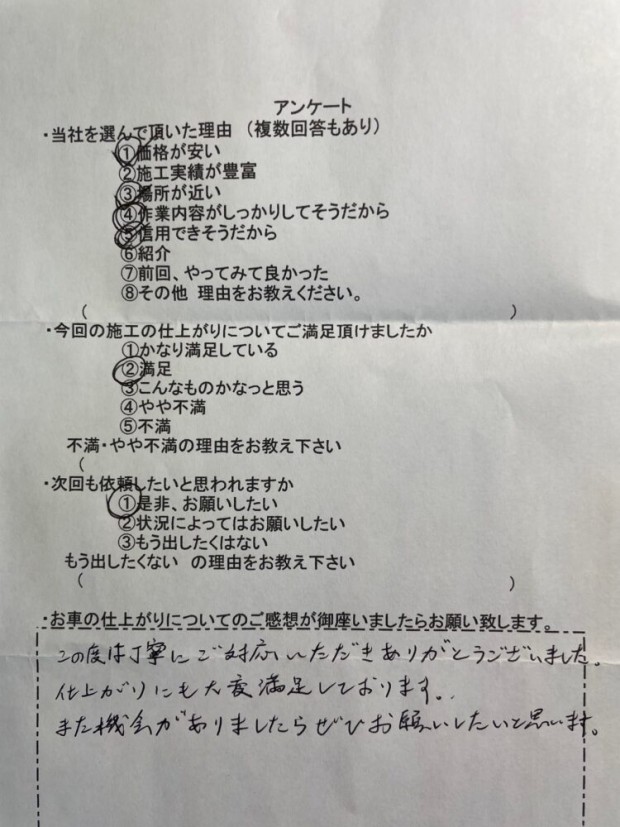 アンケート
・当社を選んで頂いた理由 （複数回答もあり）
①価格が安い
②施工実績が豊富
③場所が近い
④作業内容がしっかりしてそうだから
⑤信用できそうだから
⑥紹介
⑦前回、やってみて良かった
⑧その他 理由をお教えください。
（ ）
・今回の施工の仕上がりについてご満足頂けましたか
①かなり満足している
②満足
③こんなものかなっと思う
④やや不満
⑤不満
不満・やや不満の理由をお教え下さい
（
・次回も依頼したいと思われますか
①是非、お願いしたい
②状況によってはお願いしたい
③もう出したくはない
もう出したくない の理由をお教え下さい
（ ）
・お車の仕上がりについてのご感想が御座いましたらお願い致します。
この度は丁寧にご対応いただきありがとうございました。
仕上がりにも大変満足しております。
また機会がありましたらぜひお願いしたいと思います。